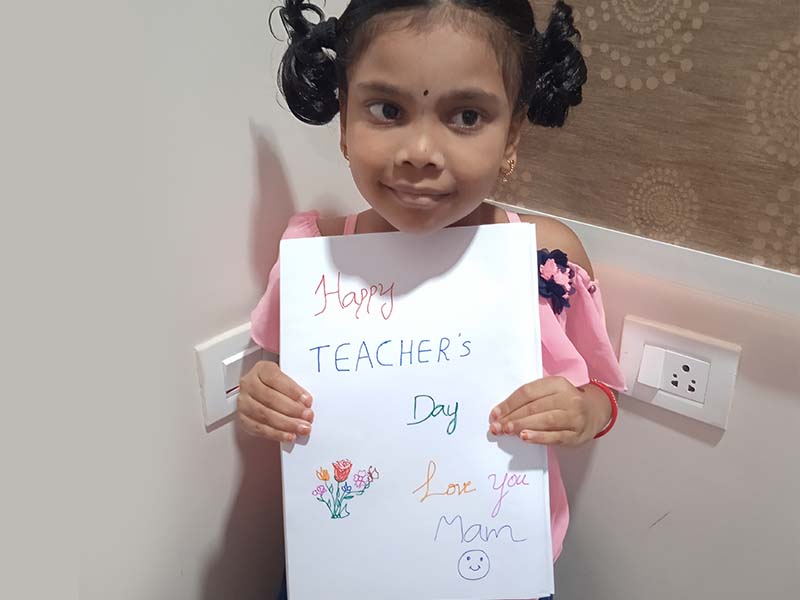 Happy
TEACHER's
Day
Love you
Mam